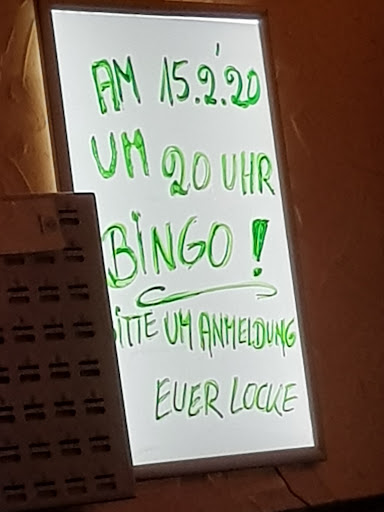 AM 15.2.20
UM 20 UHR
BINGO!
BITTE UM ANMELDUNG
EUER LOCKE